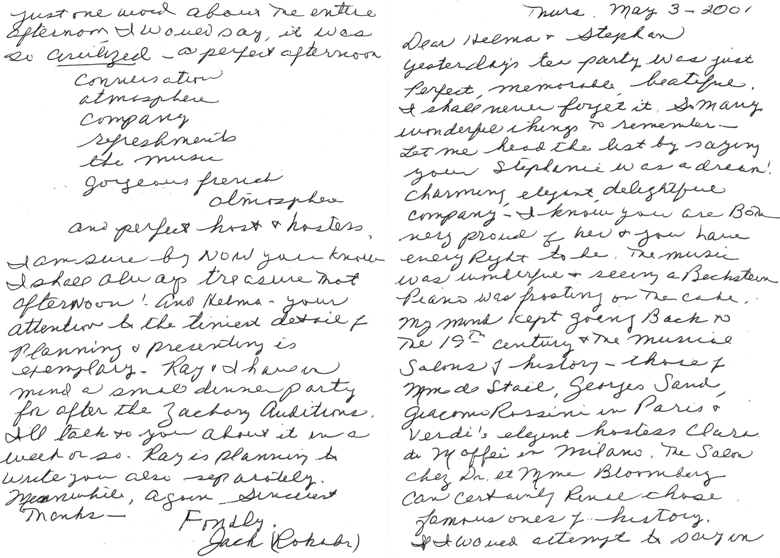 Thurs. May 3 - 2001
Dear Helma & Stephan
Yesterday's tea party was just
perfect, memorable, beatiful.
I shall never forget it. So many
wonderful things to remember—
Let me head the list by saying
your Stephanie was a dream!
Charming, elegant, delightful
company - I know you are Both
very proud of her & you have
every Right to be. The music
was wonderful & seeing a Bechstein
Piano was frosting on the cake.
My mind kept going Back to
the 19th century & the musical
Salons of history - those of
Mme de Stael, Georges Sand,
Giacomo Rossini in Paris &
Verdi's elegant hostess Clara
de Maffei in Milano. The Salon
chez Dr. et Mme Bloomberg
Can certainly Rival those
famous ones of history.
If I would attempt to say in
just one word about the entire
afternoon I would say, it was
so civilized - a perfect afternoon
conversation
atmosphere
company
refreshments
the music
gorgeous french
atmosphere
and perfect host & hostess.
I am sure by now you know
I shall always treasure that
afternoon! And Helma - your
attention to the tiniest detail of
planning & presenting is
exemplary. Ray & I have in
mind a small dinner party
for after the Zachary Auditions.
I'll talk to you about it in a
week or so. Ray is planning to
write you also separately.
Meanwhile, again sincerest
Thanks—
Fondly,
Jack